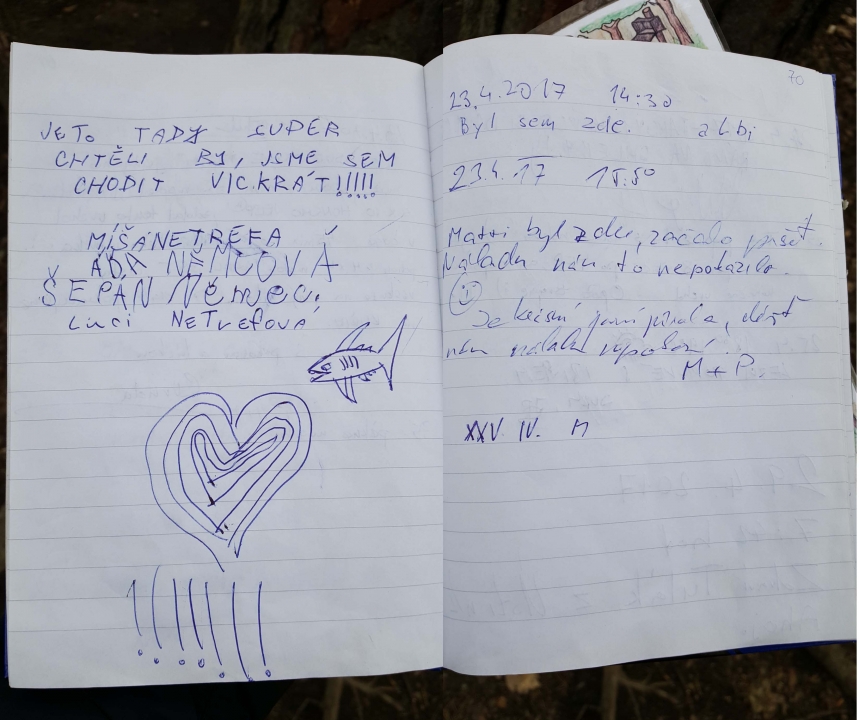 JETO TADY SUPER
CHTĚLI BY, JSME SEM
CHODIT VIC.KRÁT!!!!!
MÍŠA NETREFA
ADA NĚMCOVÁ
ŠEPÁN Němec,
Luci NETrefová
!!!!!!!
70
23.4.2017 14:30
Byl sem zde. albi
23.4.17 15:50
byl zde, začalo pršet.
Náladu nám to nepokazilo.
Je krásná, déšť
nám náladu
M + P.
XXV. IV. M